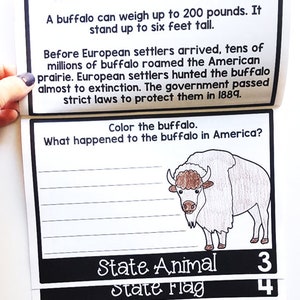 A buffalo can weigh up to 200 pounds. It
stand up to six feet tall.
Before European settlers arrived, tens of
millions of buffalo roamed the American
prairie. European settlers hunted the buffalo
almost to extinction. The government passed
strict laws to protect them in 1889.
Color the buffalo.
What happened to the buffalo in America?
State Animal 3
State Flag 4